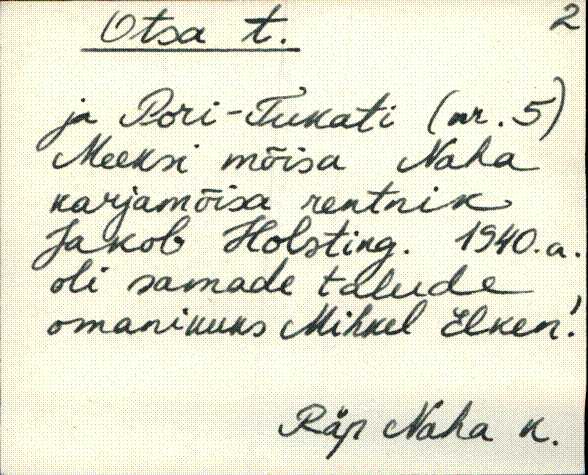 Otsa t. 2
ja Pori-Tukati (nr. 5)
Meeksi mõisa Naha
karjamõisa rentnik
Jakob Holsting. 1940. a.
oli samade talude
omanikuks Mihkel Elken!
Räp Naha k.